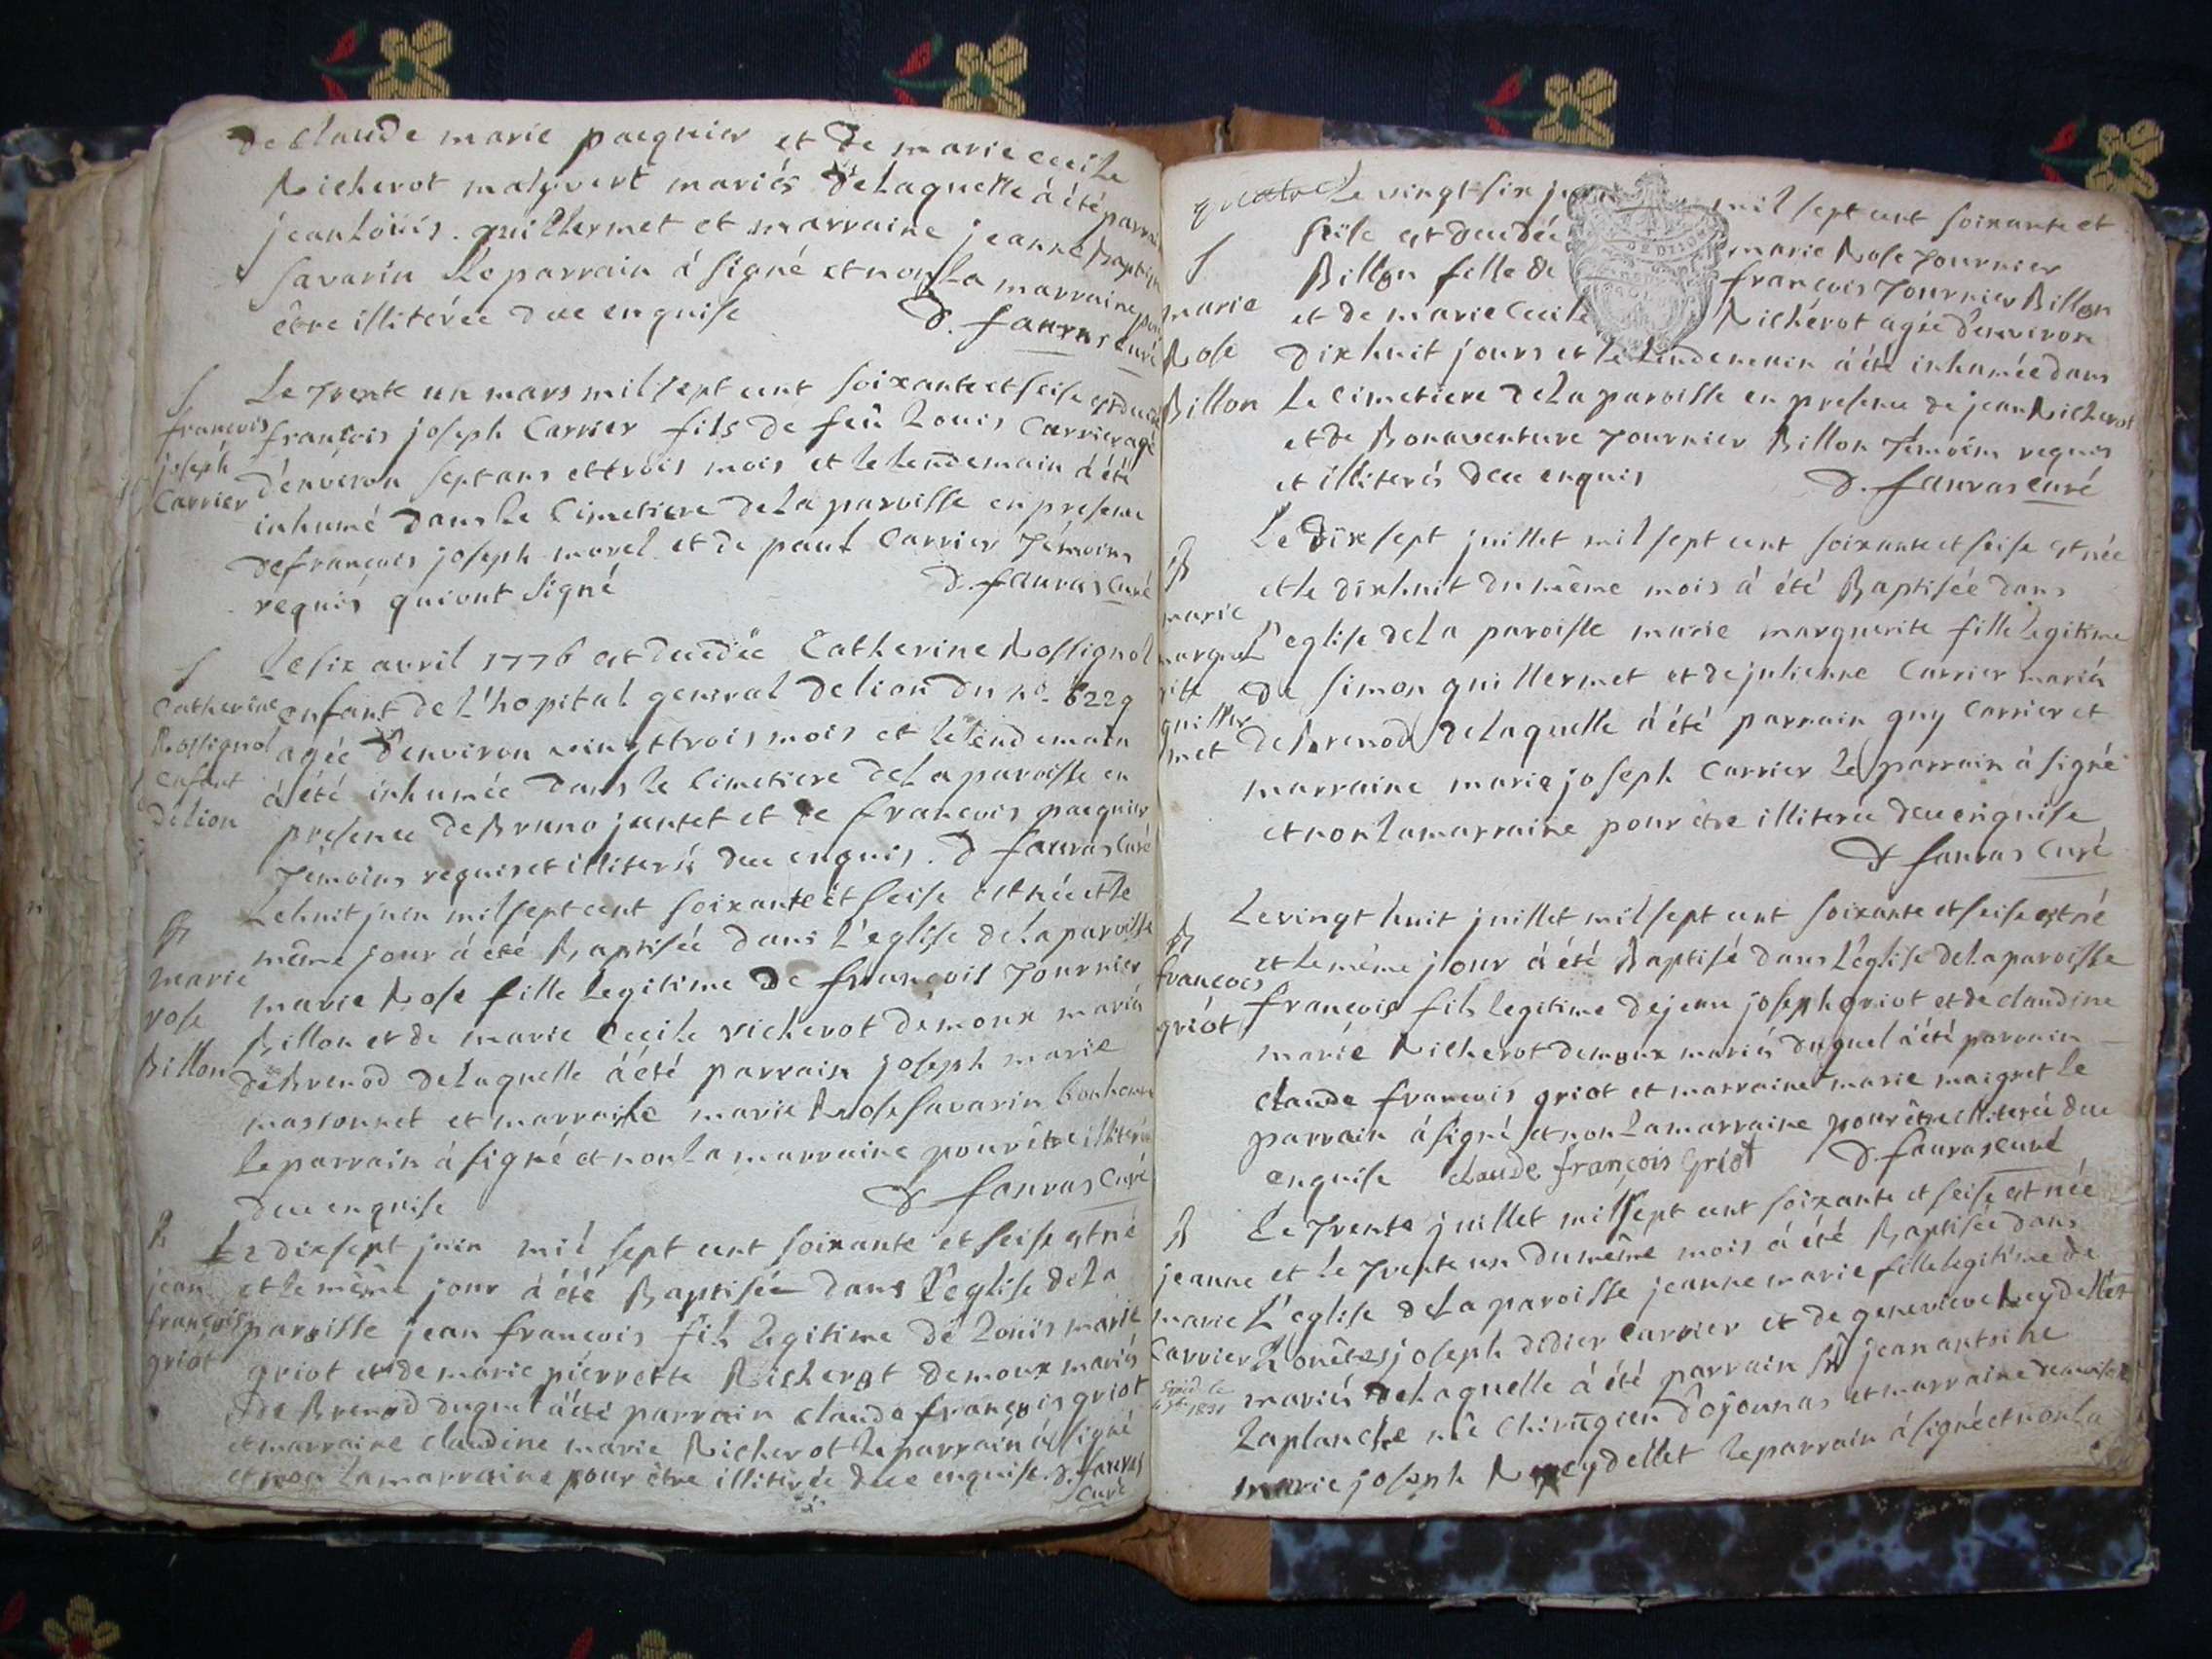 de Claude marie paequier et de marie cecile
Richerot malyvert mariés de laquelle à été parrain
jean Loüis guillermet et marraine jeanne Baptiste
savarin Le parrain á signé et non La marraine pour
être illiterée duë enquise D. fauras Curé
S
francois
joseph
Carrier
Le Trente un mars mil sept cent soixante et seise est decedé
françois joseph Carrier fils de feû Louis Carrier agé
d'environ sept ans et trois mois et le lendemain á été
inhumé dans le Cimetiere de La paroisse en presence
de françois joseph morel et de paul Carrier Témoins
requis qui ont signé D. fauras Curé
S
Catherine
Rossignol
enfant
de lion
Le six avril 1776 est decedée Catherine Rossignol
enfant de L'hopital general de lion du no. 6229
agée d'environ vingt trois mois et le lendemain
á été inhumée dans le Cimetiere de La paroisse en
presence de Bruno jantet et de francois paequier
Témoins requis et illiterés duë enquis. D fauras Curé
B
marie
rose
Billon
Le huit juin mil sept cent soixante et seise est née et le
même jour á été Baptisée dans L'eglise de La paroisse
marie Rose fille legitime de françois Tournier
Billon et de marie Cecile richerot demoux mariés
de Brenod de laquelle á été parrain joseph marie
massonnet et marraine marie Rose savarin bonhome
le parrain á signé et non La marraine pour être illiterée
duë enquise D fauras Curé
B
jean
françois
griot
Le dix sept juin mil sept cent soixante et seise est né
et le même jour á été Baptisée dans L'eglise de La
paroisse jean francois fils legitime de Loüis marie
griot et de marie pierrette Richerot demoux mariés
de Brenod duquel á été parrain claude françois griot
et marraine claudine marie Richerot le parrain á signé
et non La marraine pour être illiterée duë enquise. D. fauras
Curé
quatre
S
marie
Rose
Billon
Le vingt six mil sept cent soixante et
seise est decedée marie Rose Tournier
Billon fille de francois Tournier Billon
et de marie Cecile Richérot agée d'environ
dix huit jours et le lendemain á été inhumée dans
le Cimetiere de La paroisse en presence de jean Richerot
et de Bonaventure Tournier Billon Témoins requis
et illiterés duë enquis D. fauras Curé
B
marie
margue
rite
guiller
met
Le dix sept juillet mil sept cent soixante et seise est née
et le dix huit du même mois á été Baptisée dans
L'eglise de La paroisse marie marguerite fille legitime
de simon guillermet et de julienne Carrier mariés
de Brenod de laquelle á été parrain guy Carrier et
marraine marie joseph Carrier le parrain á signé
et non La marraine pour être illiterée duë enquise
D fauras Curé
B
francois
griot
Le vingt huit juillet mil sept cent soixante et seise est né
et le même jour á été Baptisé dans L'église de La paroisse
françois fils legitime de jean joseph griot et de claudine
marie Richerot demoux mariés duquel á été parrain
claude francois griot et marraine marie maigret le
parrain á signé et non La marraine pour être illiterée duë
enquise claude françois Griot D. fauras Curé
B
jeanne
marie
Carrier
1831
Le Trente juillet mil sept cent soixante et seise est née
et le Trente un du même mois á été Baptisée dans
L'eglise de La paroisse jeanne marie fille legitime de
honêtes joseph didier Carrier et de genevieve Reydellet
mariés de laquelle á été parrain sr jean antoine
Laplanche me Chirurgien d'ojounas et marraine demoiselle
marie joseph Reydellet le parrain á signé et non La